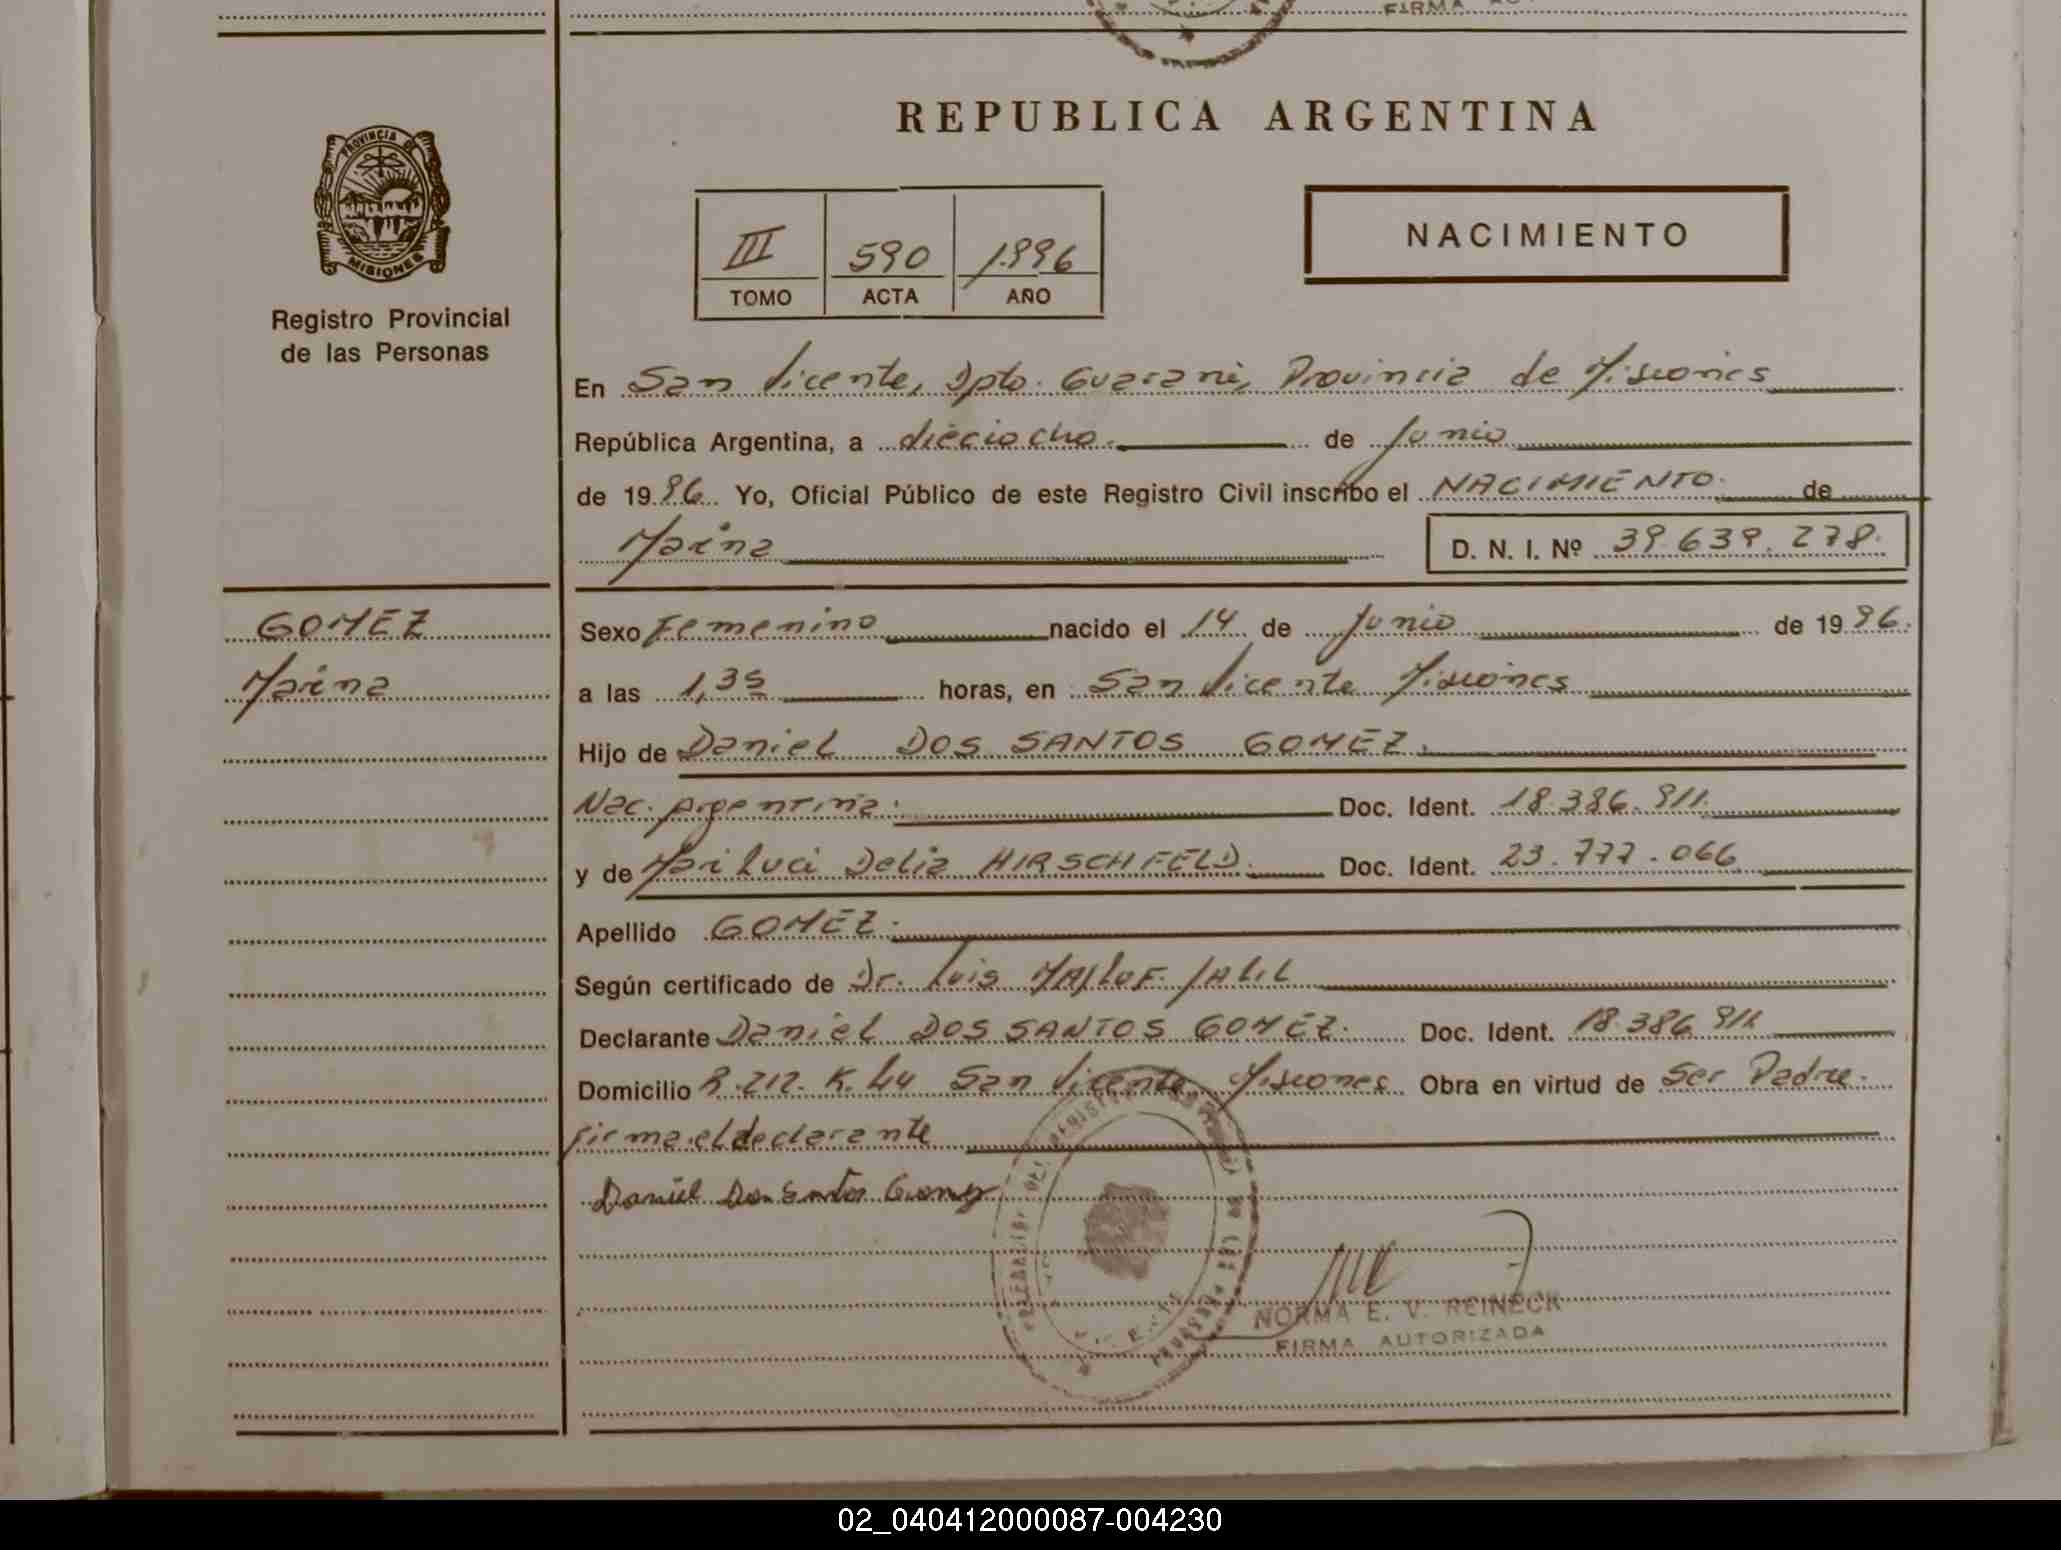 FIRMA
PROVINCIA DE
MISIONES
Registro Provincial
de las Personas
REPUBLICA ARGENTINA
III 590 1.996
TOMO ACTA AÑO
NACIMIENTO
En San Vicente, Dpto. Guarani, Provincia de Misiones
República Argentina, a dieciocho. de Junio
de 19 96 Yo, Oficial Público de este Registro Civil inscribo el NACIMIENTO. de
Marina
D. N. I. Nº 39.639.278.
GOMEZ
Marina
Sexo Femenino nacido el 14 de Junio de 19 96.
a las 1,35 horas, en San Vicente Misiones
Hijo de Daniel DOS SANTOS GOMEZ.
Nac. Argentina. Doc. Ident. 18.386.911.
y de Mari Luci Delia HIRSCHFELD. Doc. Ident. 23.777.066
Apellido GOMEZ.
Según certificado de Dr. Luis
Declarante Daniel DOS SANTOS GOMEZ. Doc. Ident. 18.386.911
Domicilio R.212. K.44 San Vicente Misiones Obra en virtud de Ser Padre.
Firma el declarante
Daniel Dos Santos Gomez
NORMA E. V. REINECK
FIRMA AUTORIZADA
02_040412000087-004230